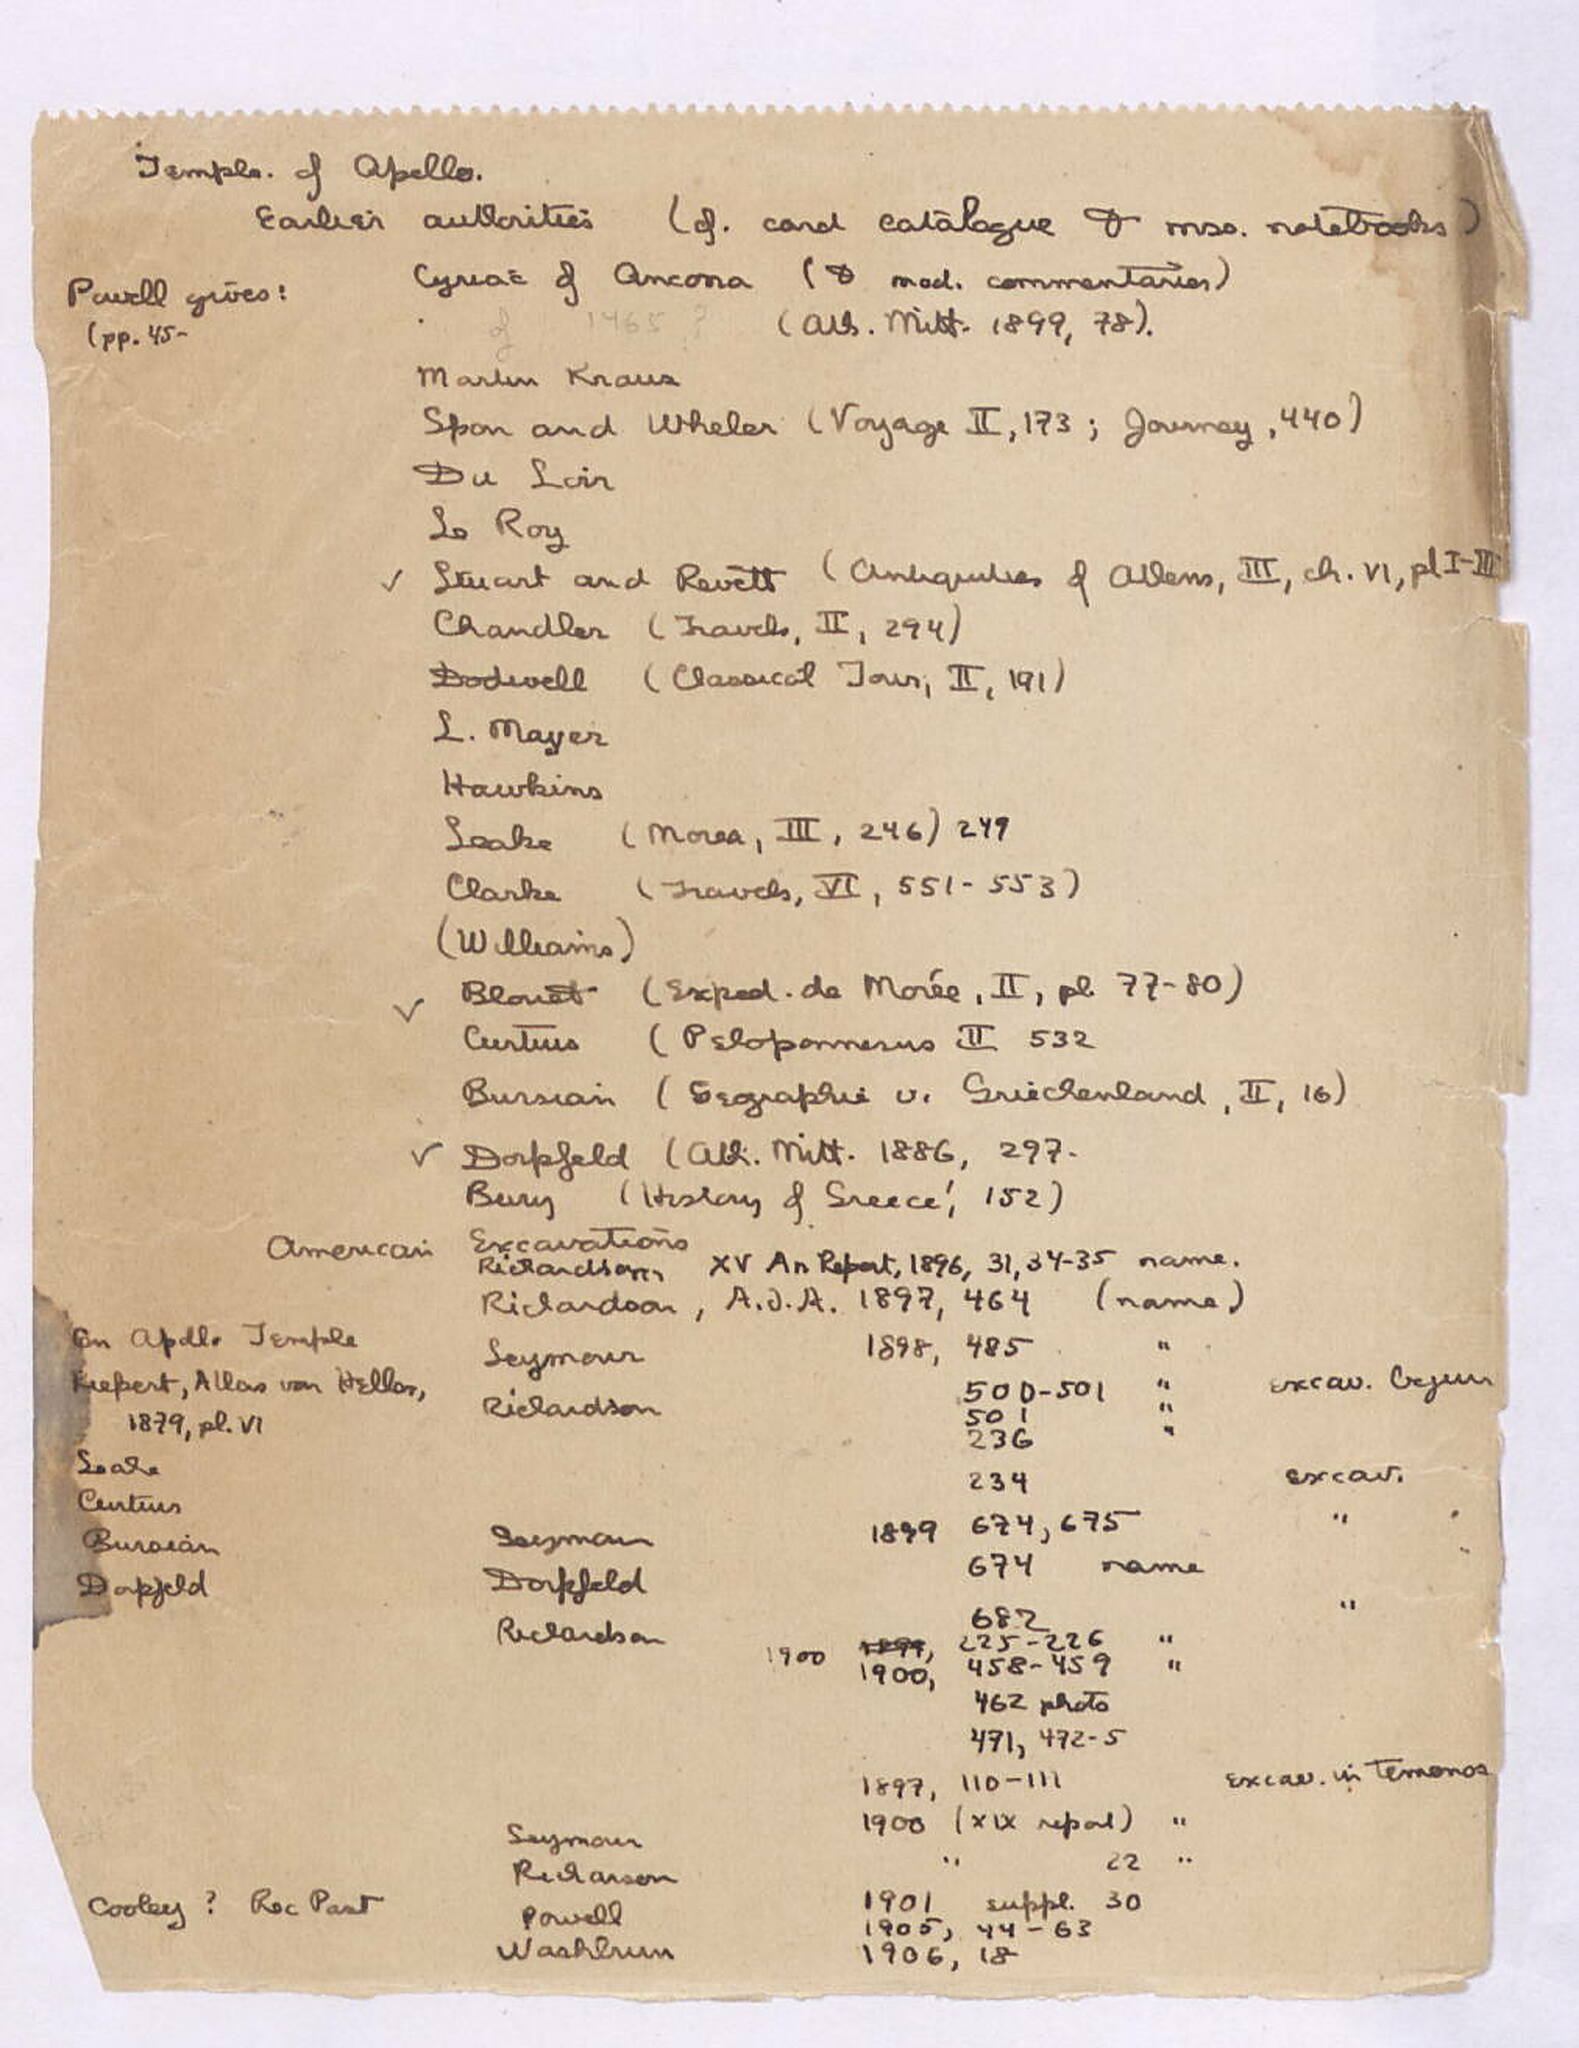 Temple. of Apollo.
Earlier authorities (cf. card catalogue & mss. notebooks)
Powell gives:
(pp. 45-
Cyriac of Ancona (& mod. commentaries)
of 1465 ? (Ath. Mitt. 1899, 78).
Martin Kraus
Spon and Wheler (Voyage II, 173; Journey, 440)
Du Loir
Le Roy
✓ Stuart and Revett (Antiquities of Athens, III, ch. VI, pl I-III
Chandler (Travels, II, 294)
Dodwell (Classical Tour, II, 191)
L. Mayer
Hawkins
Leake (Morea, III, 246) 249
Clarke (Travels, VI, 551-553)
(Williams)
✓ Blouet (Exped. de Morée, II, pl. 77-80)
Curtius (Peloponnesus II 532
Bursian (Geographie v. Griechenland, II, 16)
✓ Dorpfeld (Ath. Mitt. 1886, 297-
Bury (History of Greece, 152)
American Excavations
Richardson, XV An Report, 1896, 31, 34-35 name.
Richardson, A.J.A. 1897, 464 (name)
On Apollo Temple
Seymour 1898, 485 "
Kiepert, Atlas von Hellas,
500-501 " excav. begun
Richardson 501 "
1879, pl. VI
236 "
Leake
234 excav.
Curtius
Seymour 1899 674, 675 "
Bursian
674 name
Dorpfeld
Dorpfeld
682 "
Richardson 1900 1899, 225-226 "
1900, 458-459 "
462 photo
471, 472-5
1897, 110-111 excav. in Temenos
Seymour 1900 (XIX report) "
Richarson " 22 "
Cooley ? Rec Past
Powell 1901 suppl. 30
1905, 44-63
Washburn 1906, 18